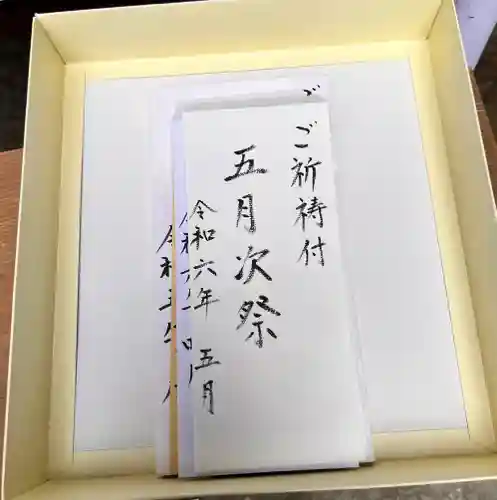 ご祈祷付
五月次祭
令和六年 五月